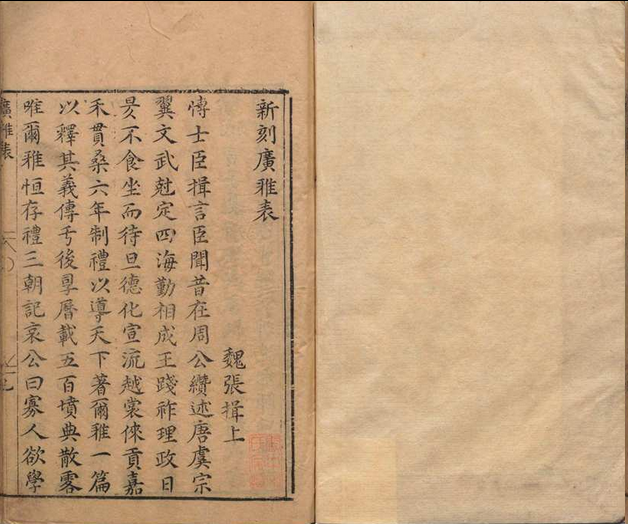 新刻廣雅表
魏張揖上
博士臣揖言臣聞昔在周公纘述唐虞宗
翼文武尅定四海勤相成王踐祚理政日
昃不食坐而待旦德化宣流越裳倈貢嘉
禾貫桑六年制禮以導天下著爾雅一篇
以釋其義傳亐後孠厯載五百墳典散零
唯爾雅恒存禮三朝記哀公曰寡人欲學
廣雅表